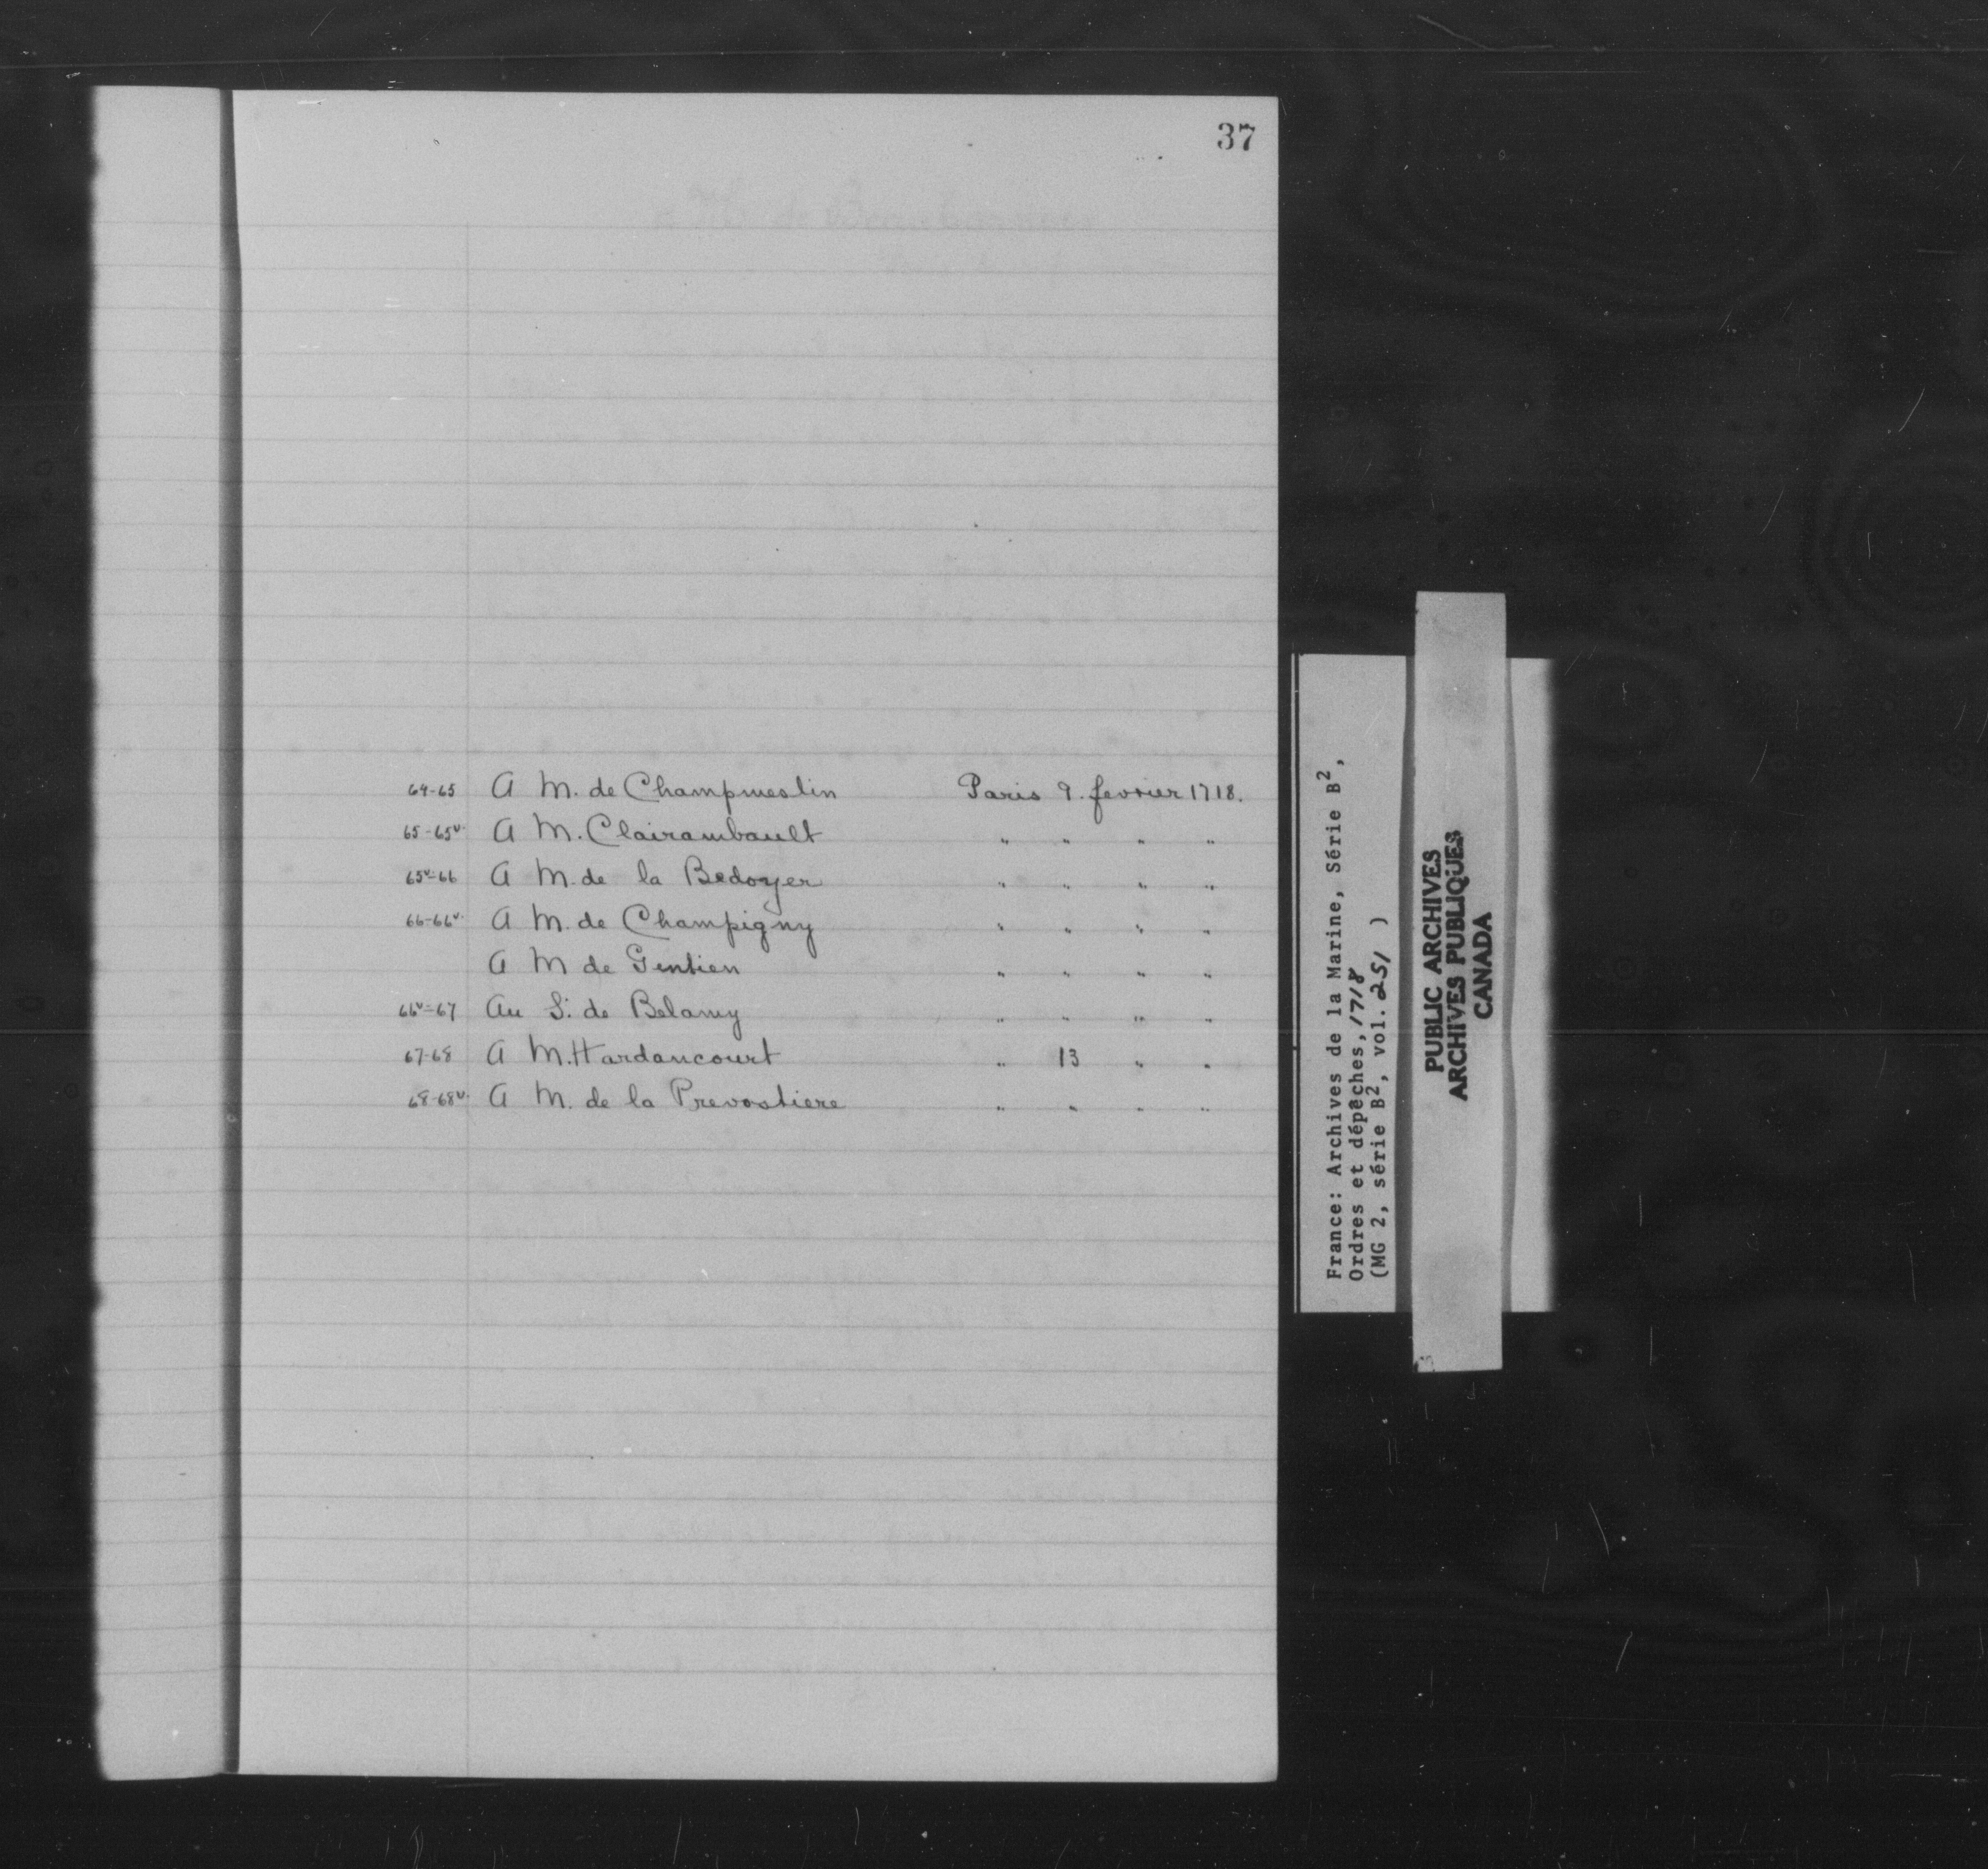 37
64-65 A M. de Champmeslin Paris 9. fevrier 1718.
65-65v. A M. Clairambault " " " "
65v-66 A M. de la Bedoyer " " " "
66-66v. A M. de Champigny " " " "
A M de Gentien " " " "
66v-67 Au S. de Belamy " " " "
67-68 A M. Hardancourt " 13 " "
68-68v. A M. de la Prevostiere " " " "
France: Archives de la Marine, Série B2,
Ordres et dépêches, 1718
(MG 2, série B2, vol. 251 )
PUBLIC ARCHIVES
ARCHIVES PUBLIQUES
CANADA